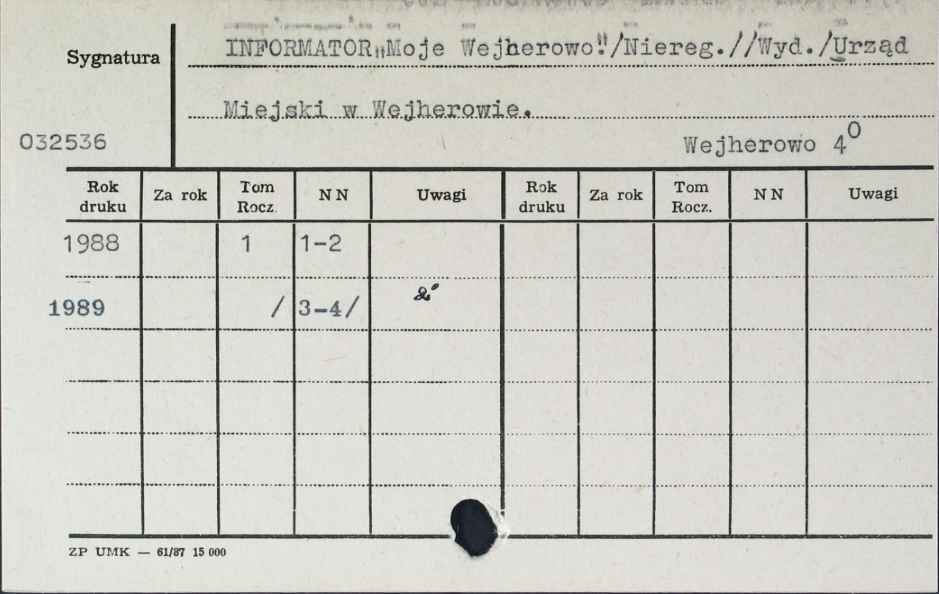 INFORMATOR„Moje Wejherowo"/Niereg.//Wyd./Urząd
Sygnatura
Miejski w Wejherowie.
032536
Wejherowo 4⁰
Rok druku Za rok Tom Rocz. N N Uwagi Rok druku Za rok Tom Rocz. N N Uwagi
1988 1 1-2
1989 / 3-4/
ZP UMK — 61/87 15 000